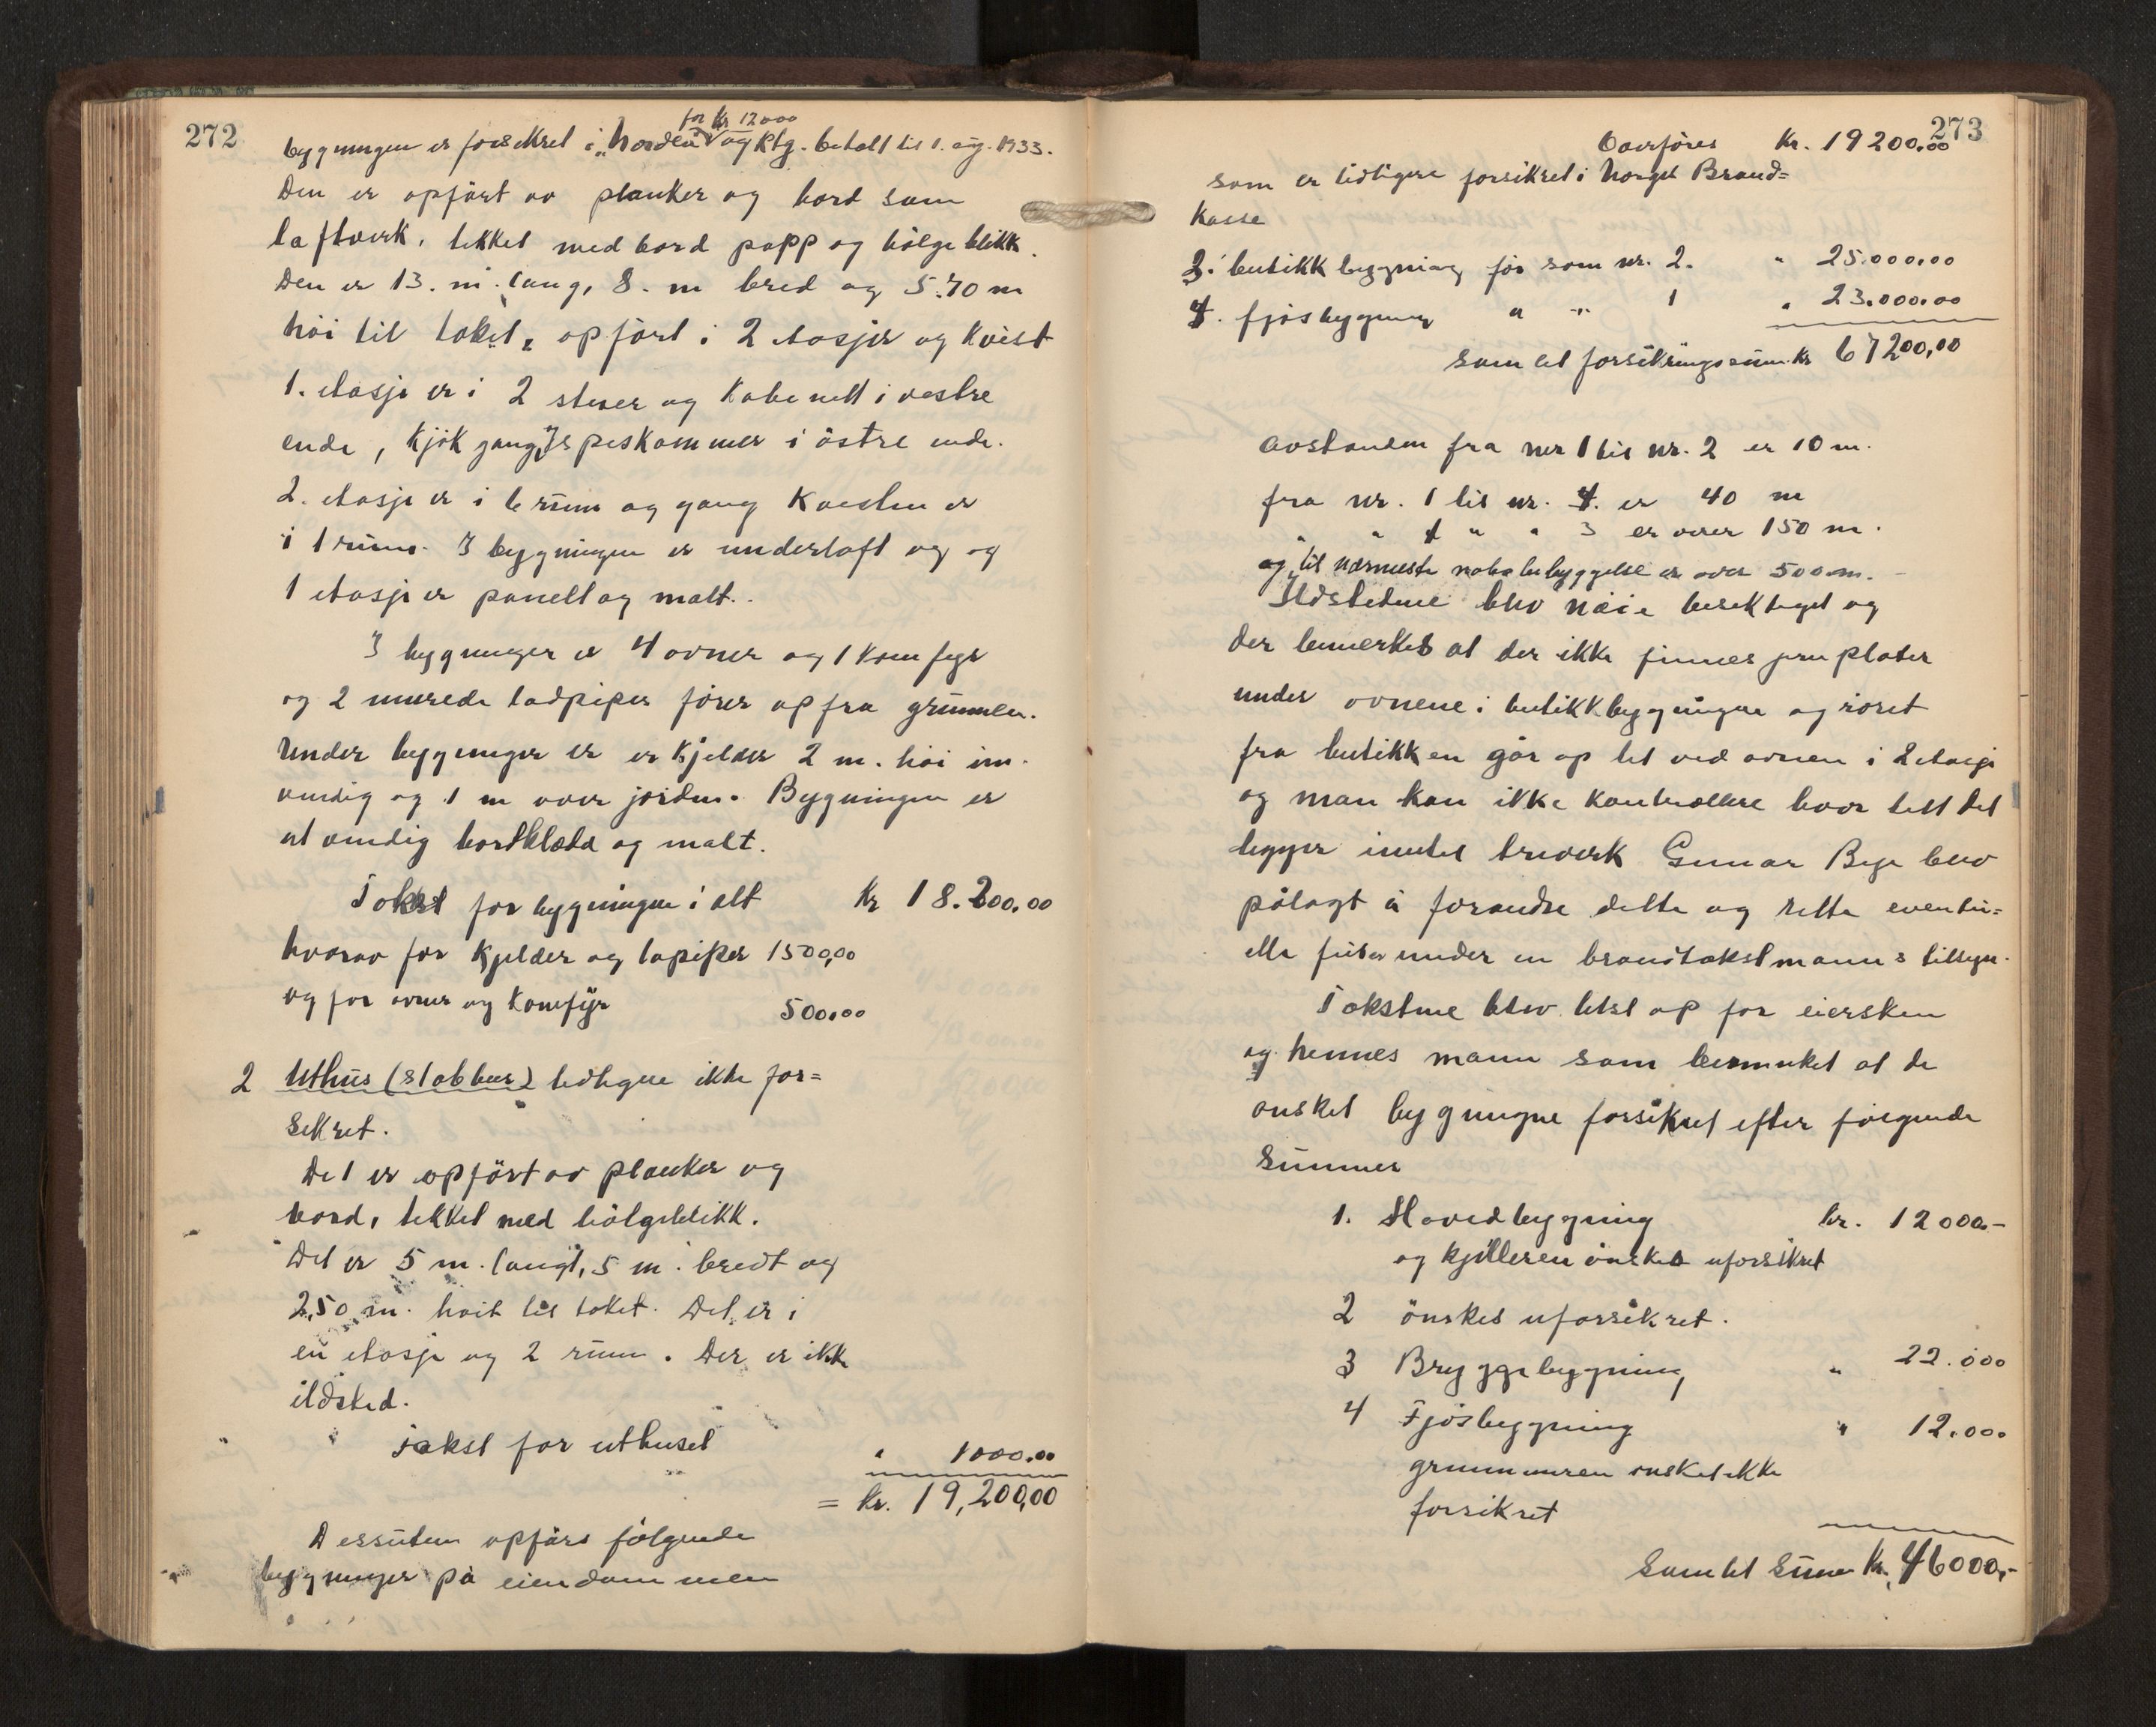 272
for Kr 12000
bygningen er forsikret i „Norden" og ktg. betalt til 1. aug. 1933.
Den er opført av planker og bord som
laftverk, tekket med bord papp og bölge blikk.
Den er 13. m. lang, 8. m bred og 5.70 m
höi til taket, opfört i 2 etasjer og kvist
1. etasje er i 2 stuer og kabinett i vestre
ende, kjök gang og speskammer i östre ende.
2. etasje er i 6 rum og gang Kvisten er
i 1 rum. I bygningen er underloft og og
1 etasje er panelt og malt.
I bygningen er 4 ovner og 1 komfyr
og 2 murede ladpiper förer op fra grunnen.
Under bygningen er er kjelder 2 m. höi inn-
vendig og 1 m over jorden. Bygningen er
utvendig bordklædd og malt.
Takst for bygningen i alt Kr 18.200.00
hvorav for kjelder og lapiper 1500,00
og for ovner og komfyr 500.00
2 Uthus (stabbur) tidligere ikke for=
sikret.
Det er opfört av planker og
bord, tekket med bölgeblikk.
Det er 5 m. langt, 5 m. bredt og
2,50 m. höit til taket. Det er i
en etasje og 2 rum. Der er ikke
ildsted.
Takst for uthuset " 1000.00
= Kr. 19,200,00
Dessuten opförs fölgende
bygninger på eiendommen
273
Overföres Kr. 19200.00
som er tidligere forsikret i Norges Brand=
kasse
3. butikkbygning för som nr. 2. " 25.000.00
4. fjösbygning " " 1 " 23.000.00
Samlet forsikringssum Kr 67200,00
Avstanden fra nr 1 til nr. 2 er 10 m.
fra nr. 1 til nr. 4. er 40 m
" " 1 " " 3 er over 150 m.
og til nærmeste nabobebyggelse er over 500 m.
Ildstedene blev nöie besiktiget og
der bemerkes at der ikke finnes jernplater
under ovnene i butikkbygningen og röret
fra butikken går op tet ved ovnen i 2 etasje
og man kan ikke kontrollere hvor tett det
ligger inntil treverk Gunnar Bye blev
pålagt å forandre dette og rette eventu=
elle feil under en brandtakstmanns tilsyn.
Takstene blev lest op for eiersken
og hennes mann som bemerket at de
önsket bygningene forsikret efter fölgende
Summer
1. Hovedbygning kr. 12000.-
og kjelleren önskes uforsikret
2 önskes uforsikret.
3 Bryggebygning " 22.000
4 Fjösbygning " 12.000
grunnmuren önsket ikke
forsikret
Samlet Sum Kr. 46000,-